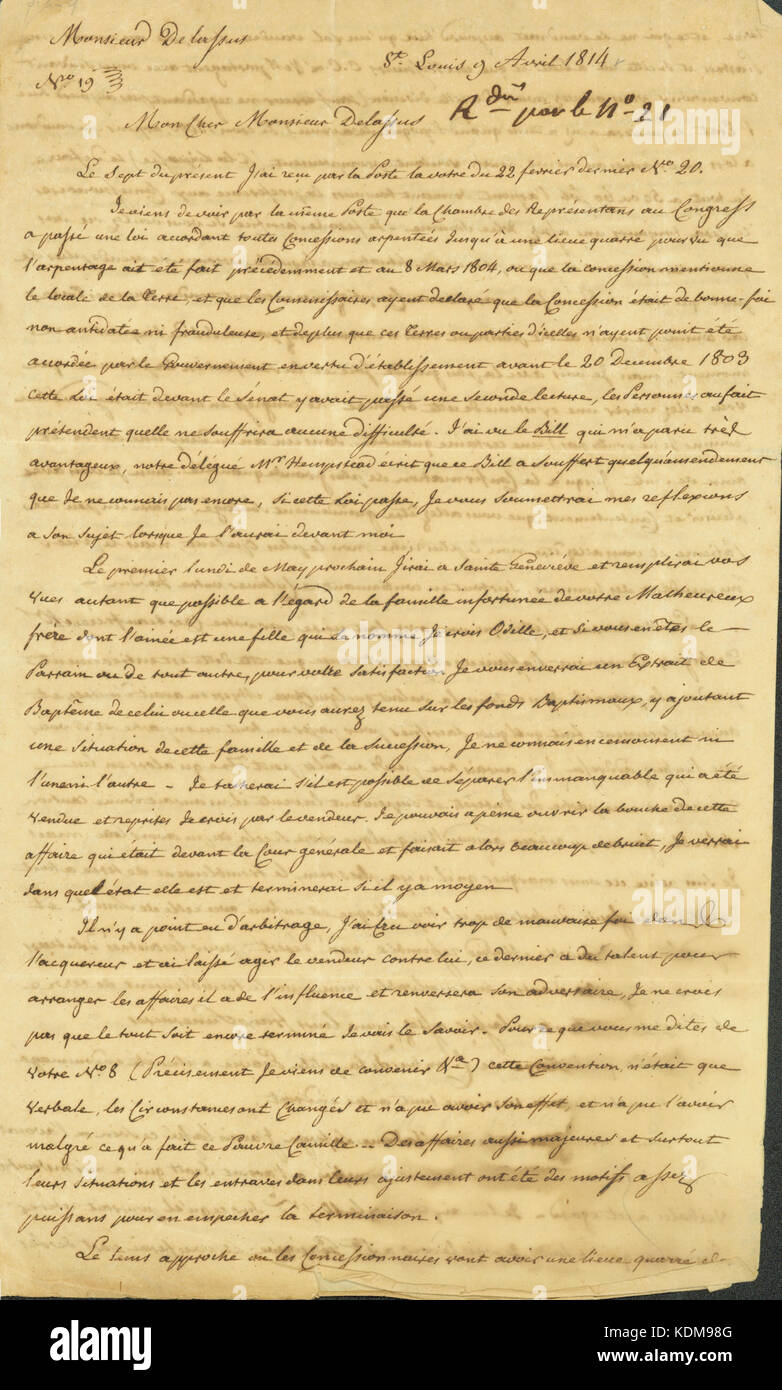 Monsieur Delassus
St. Louis 9 Avril 1814
No 19
Rdu par le No 21
Mon Cher Monsieur Delassus
Le Sept du présent J'ai reçu par la Poste la votre du 22. fevrier dernier No. 20.
Je viens de voir par la même Poste que la Chambre des Représentans au Congress
a passé une loi accordant toutes Concessions arpentées Jusqu'à une lieue quarré pourvu que
l'arpentage ait été fait précédemment et au 8 Mars 1804, ou que la concession mentionne
le locale de la Terre, et que les Commissaires ayent declaré que la Concession était de bonne-foi
non antidatée ni frauduleuse, et deplus que ces Terres ou parties d'icelles n'ayent point été
accordée par le Gouvernement en vertu d'établissement avant le 20 Decembre 1803
cette Loi était devant le Sénat y avait passé une seconde lecture, les Personnes au fait
prétendent quelle ne souffrira aucune difficulté. J'ai vu le Bill qui m'a paru très
avantageux, notre délégué Mr. Hempstead écrit que ce Bill a Souffert quelqu'amendement
que Je ne connais pas encore, Si cette Loi passe, Je vous soumettrai mes reflexions
a son sujet lorsque Je l'aurai devant moi
Le premier lundi de May prochain J'irai a Sainte Geneviéve et remplirai vos
vues autant que possible a l'égard de la famille infortunée de votre Malheureux
frère dont l'ainée est une fille qui se nomme Je crois Odille, et Si vous en êtes le
Parrain ou de tout autre, pour votre Satisfaction Je vous enverrai un Extrait de
Baptême de celui ou celle que vous aurez tenu sur les fonds Baptismaux, y ajoutant
une situation de cette famille et de la Succession, Je ne connais en ce moment ni
l'une ni l'autre - Je tacherai s'il est possible de séparer l'immanquable qui a été
vendue et reprises Je crois par le vendeur. Je pouvais a peine ouvrir la bouche de cette
affaire qui était devant la Cour générale et faisait alors beaucoup de bruit, Je verrai
dans quel état elle est et terminerai si il y a moyen
Il n'y a point eu d'arbitrage, J'ai Cru voir trop de mauvaise foi dans
l'acquereur et ai laissé agir le vendeur contre lui, ce dernier a du talent pour
arranger les affaires il a de l'influence et renversera son adversaire, Je ne crois
pas que le tout soit encore terminé Je vais le Savoir. Pour ce que vous me dites de
votre No. 8 (Précisement Je viens de convenir &a) cette Convention, n'était que
verbale, les Circonstances ont Changés et n'a pu avoir son effet, et n'a pu l'avoir
malgré ce qu'a fait ce Pauvre Camille... Des affaires aussi majeures et surtout
leurs situations et les entraves dans leurs ajustement ont été des motifs assez
puissans pour en empecher la terminaison.
Le tems approche ou les Concessionnaires vont avoir une lieue quarré de
alamy
Image ID: KDM98G
www.alamy.com